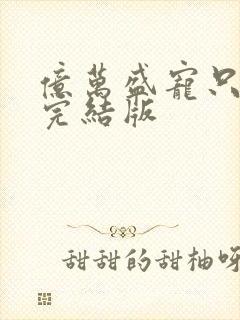 億萬盛寵只
完結版
甜甜的甜柚呀